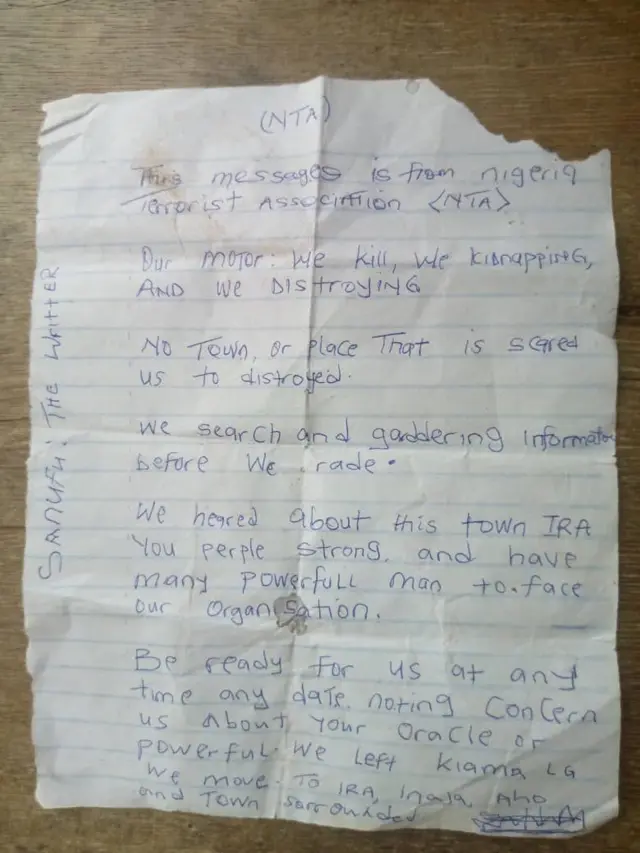 (NTA)
This messages is from nigeria
Terrorist Association <NTA>
Our motor: We kill, We kidnapping,
AND We DIStroyING
No Town, or place That is scared
us to distroyed.
We search and gaddering information
before We rade.
We heared about this town IRA
You perple strong, and have
many powerfull man to.face
our organisation.
Be ready for us at any
time any date. noting concern
us About your oracle or
powerful. We Left Kiama LG
We move. To IRA, Inaja, Aho
and Town sarrounded
SANUFU: THE WRITTER